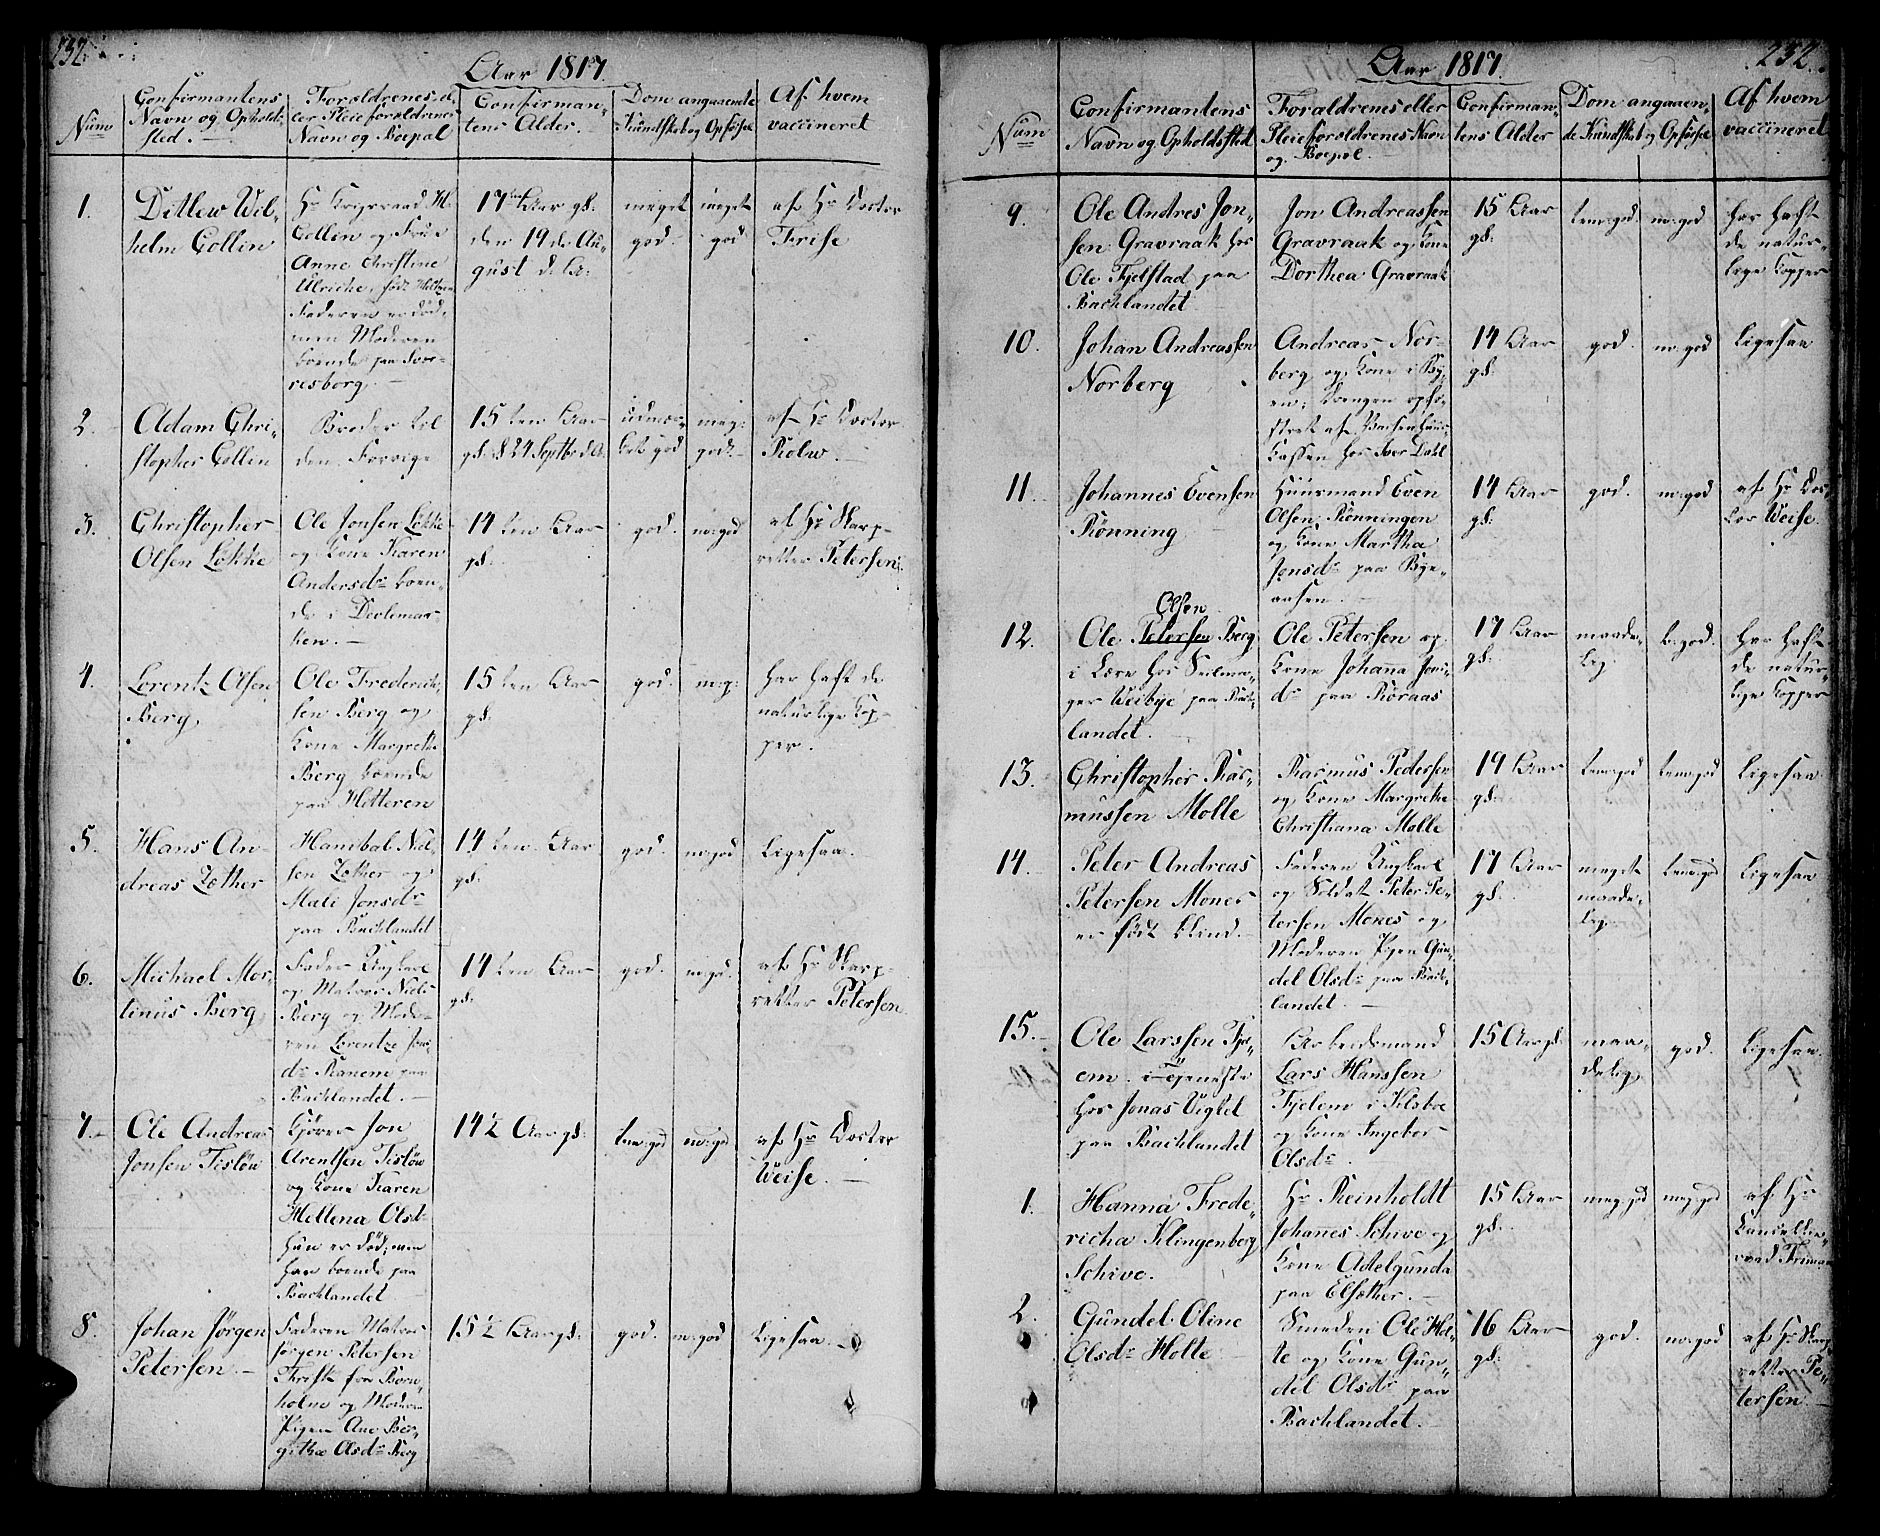 232.
Aar 1817.
Num
Confirmantens
Navn og Opholds-
sted.
Forældrenes el-
ler Pleieforældrenes
Navn og Boepæl
Confirman-
tens Alder.
Dom angaaende
Kundskab og Opførsel
Af hvem
vaccineret
1.
Ditlew Wil-
helm Collin
Hr Krigsraad M.
Collin og Frue
Anne Christine
Ulriche, født
Faderen er død,
men Moderen
boende paa Sver-
resborg.
17 Aar gl.
den 19 de Au-
gust d. A.
meget
god.
meget
god
af Hr Doctor
Frise
2.
Adam Chri-
stopher Collin
Broder til
den Forrige
15 ten Aar
gl. d 24 Septbr d. A.
udmær-
ket god
meg:
god.
af Hr Doctor
Rolw.
3.
Christopher
Olsen Løkke
Ole Jonsen Løkke
og Kone Karen
Andersdr boen-
de i
ken.
14 ten Aar
gl.
god.
m:god
af Hr Skarp-
retter Petersen
4.
Lorentz Olsen
Berg
Ole Frederich-
sen Berg og
Kone Margrethe
Berg boende
paa Hitteren
15 ten Aar
gl.
god.
m:g:
har haft de
naturlige Kop-
per.
5.
Hans An-
dreas Zether
Hanibal Niel-
sen Zether og
Mali Jonsdr
paa Bachlandet
14 ten Aar
gl.
god.
m:god
Ligesaa.
6.
Michael Mor-
tinus Berg
Fader Ungkarl
og Matros Niels
Berg og Mode-
ren Lorentze Jons-
dr Ranem paa
Bachlandet.
14 ten Aar
gl.
god.
m:gd.
af Hr Skarp-
retter Petersen
7.
Ole Andreas
Jonsen Tisløw
Kjører Jon
Arentsen Tisløw
og Kone Karen
Hellena Olsdr
hun er død, men
han boende paa
Bachlandet
14½ Aar gl.
tem:god
m:god
af Hr Doctor
Weise.
8.
Johan Jørgen
Petersen.
Faderen Matros
Jørgen Petersen
Thrist fra Born-
holm og Moder
Pigen Ane Ber-
githæ Olsdr Berg
15½ Aar gl.
god.
m:god
Ligesaa.
232.
Aar 1817.
Num
Confirmantens
Navn og Opholdssted
Forældrenes eller
Pleieforældrenes Navn
og Boepæl.
Confirman-
tens Alder
Dom angaaen-
de Kundskab og Opførsel
Af hvem
vaccineret
9.
Ole Andres Jon-
sen Gravraak hos
Ole Fjelstad paa
Bachlandet
Jon Andreassen
Gravraak og Kone
Dorthea Gravraak
15 Aar
gl.
tem:god
m:god
har haft
de natur-
lige Kopper
10.
Johan Andreassen
Norberg
Andreas Nor-
berg og Kone i By-
en; Drengen opfo-
stret af Vaisenhuus
Kassen hos Iver Dahl
14 Aar
gl.
god.
m:god
Ligesaa
11.
Johannes Evensen
Rønning
Huusmand Even
Olsen Rønningen
og Kone Martha
Jonsdr paa Bye-
aasen.
14 Aar
gl.
god.
m:god
af Hr Doc-
tor Weise.
12.
Olsen
Ole Petersen Berg
i Lære hos Seilma-
ger Weibye paa Bach-
landet.
Ole Petersen og
Kone Johana Jons-
dr paa Røraas
17 Aar
gl.
maade-
lig.
t:god.
har haft
de natur-
lige Kopper
13.
Christopher Ras-
mussen Molle
Rasmus Pedersen
og Kone Margrethe
Christiana Molle
19 Aar
gl.
tem:god
tem:god
Ligesaa
14.
Peter Andreas
Petersen Mones
er født blind.
Faderen Ungkarl
og Soldat Peter Pe-
tersen Mones og
Moderen Pigen Gun-
del Olsdr paa Bach-
landet.
17 Aar
gl.
meget
maade-
lig.
tem:god
Ligesaa
15.
Ole Larssen Fjel-
em. i Tjeneste
hos Jonas Viglet
paa Bachlandet
Arbeidsmand
Lars Hanssen
Fjelem i Ilsboe
og Kone Ingebor
Olsdr
15 Aar gl.
maa-
delig
god.
Ligesaa.
1.
Hanna Frede-
richa Klingenberg
Schive.
Hr Reinholdt
Johannes Schive og
Kone Adelgunda
paa Elsæther.
15 Aar
gl.
meg:god
meg:god
af Hr
Cancellie-
raad
2.
Gundel Oline
Olsdr Holte
Smeden Ole Hol-
te og Kone Gun-
del Olsdr paa
Bachlandet.
16 Aar
gl.
god.
m:god
af Hr Skarp-
retter Pe-
tersen.